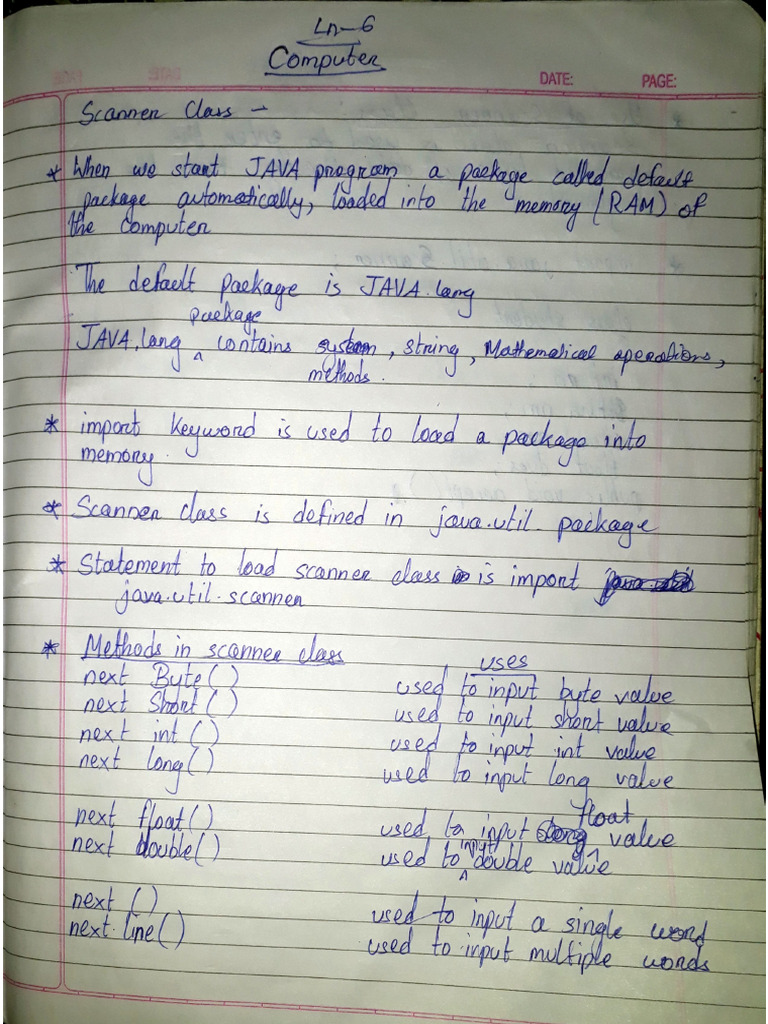 Ln-6
Computer
DATE: PAGE:
Scanner Class -
* When we start JAVA program a package called default
package automatically, loaded into the memory (RAM) of
the computer
The default package is JAVA.lang
package
JAVA.lang ^ contains system, string, Mathematical operations,
methods.
* import keyword is used to load a package into
memory.
* Scanner class is defined in java.util. package
* Statement to load scanner class is import
java.util.scanner
* Methods in scanner class uses
next Byte() used to input byte value
next Short() used to input short value
next int() used to input int value
next long() used to input long value
float
next float() used to input ^ value
next double() used to ^ input double value
next () used to input a single word
next.line() used to input multiple words